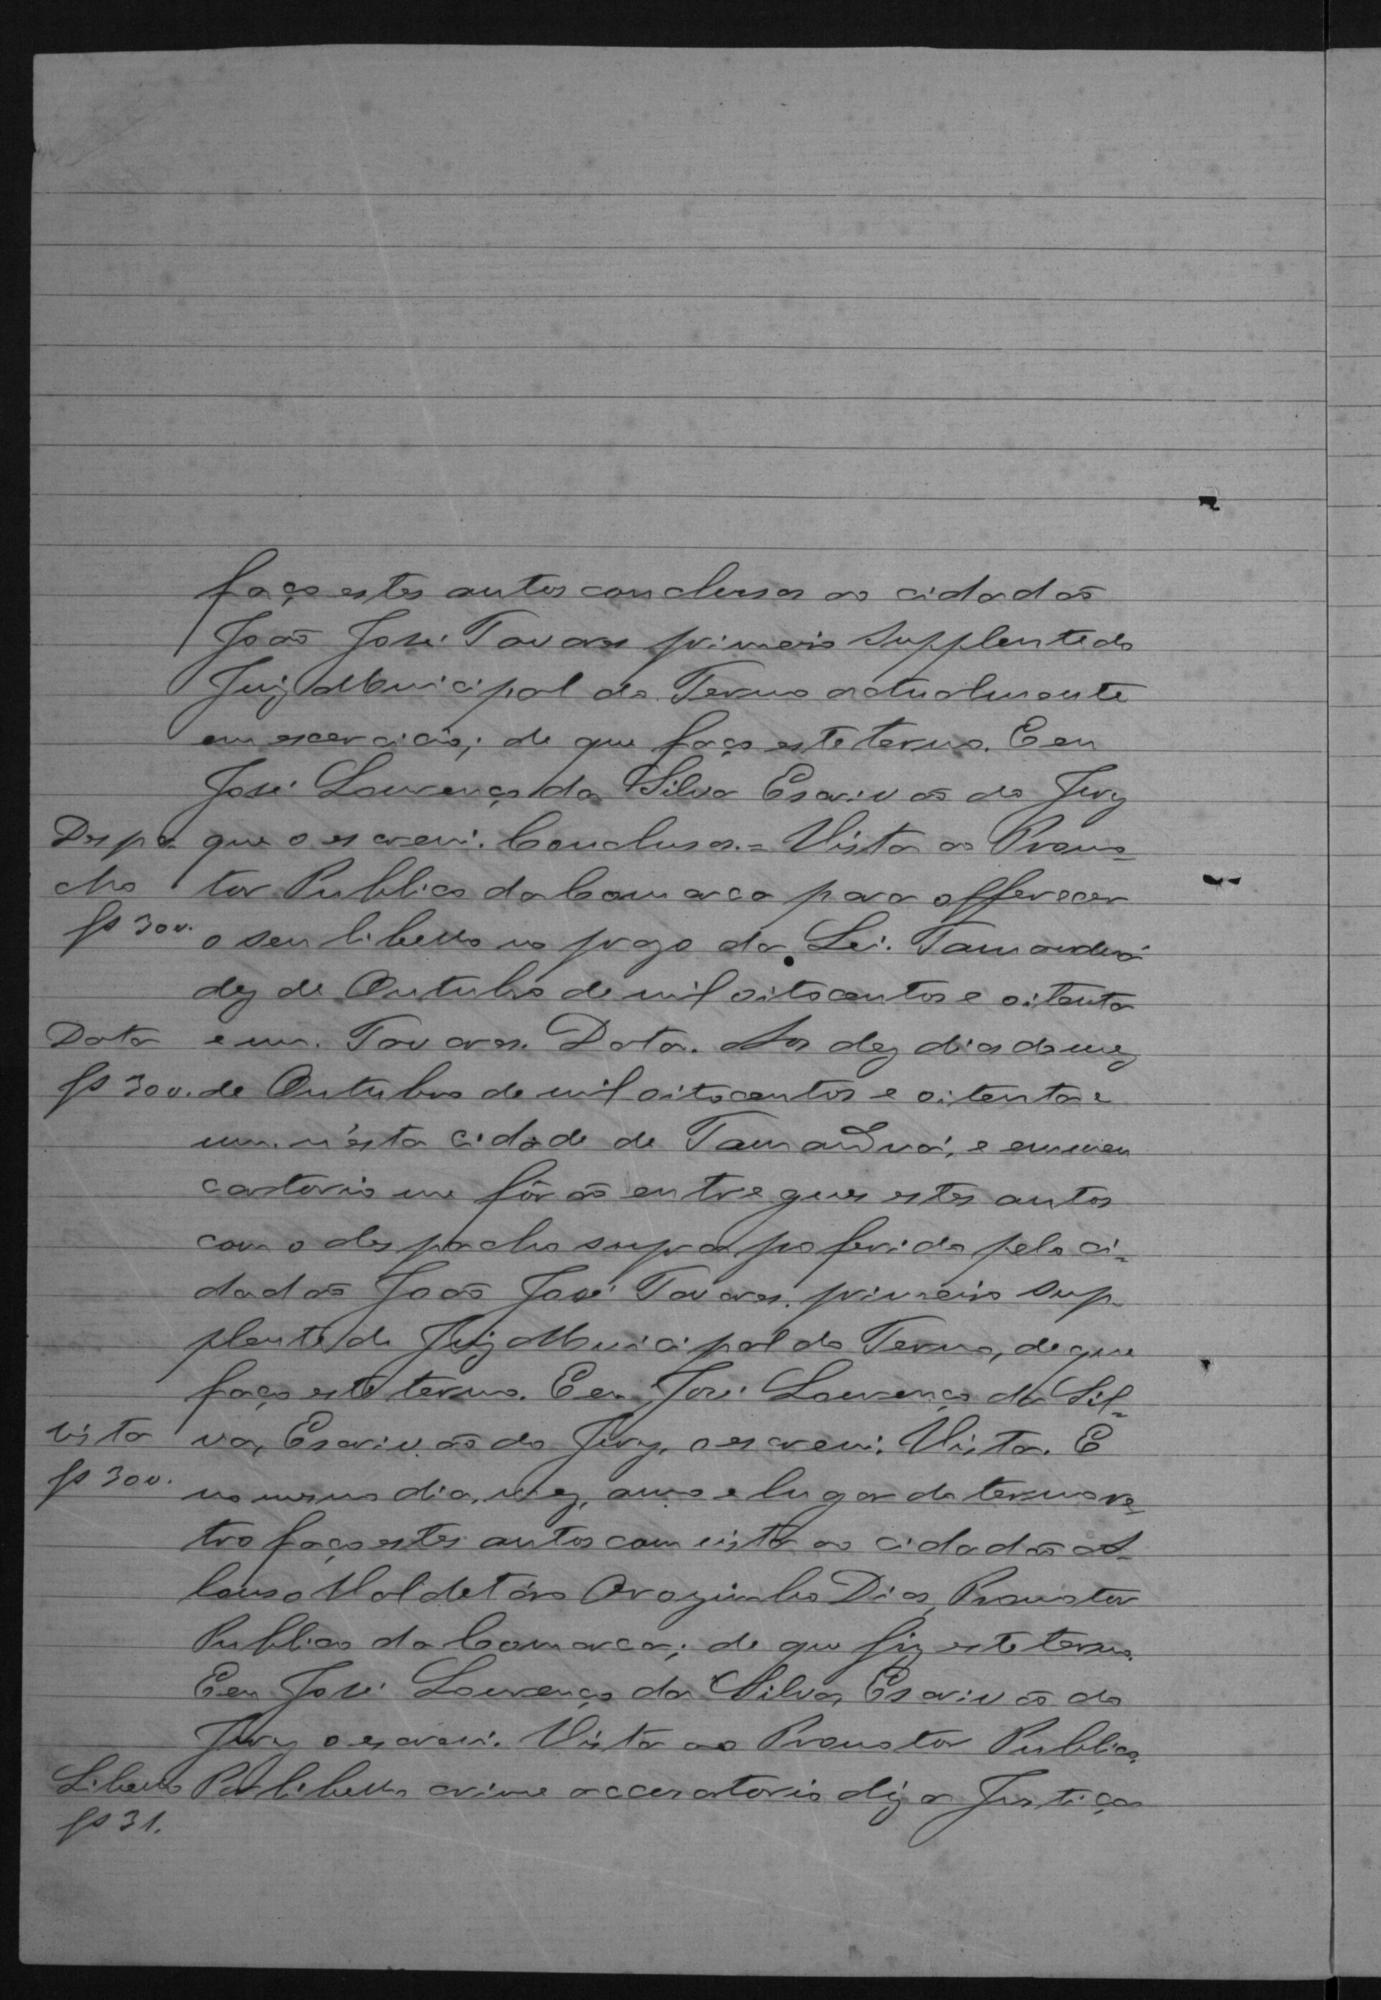 faço estes autos conclusos ao cidadão
João José Tavares primeiro Supplente do
Juiz Municipal do Termo actualmente
em escercicio; de que faço este termo. E eu
José Lourenço da Silva Escrivão do Jury
Despa- que o escrevi. Conclusos.= Vista ao Promo=
cho tor Publico da Comarca para offerecer
fs 30v. o seu libello no prazo da Lei. Tamanduá
dez de Outubro de mil oitocentos e oitenta
Data e um. Tavares. Data. Aos dez dias do mez
fs 30v. de Outubro de mil oitocentos e oitenta e
um, n'esta cidade de Tamanduá, e em meu
cartorio me fôrão entregues estes autos
com o despacho supra proferido pelo ci=
dadão João José Tavares, primeiro sup-
plente do Juiz Municipal do Termo, de que
faço este termo. E eu José Lourenço da Sil=
vista va, Escrivão do Jury, o escrevi. Vista. E
fs 30v. no mesmo dia, mez, anno e lugar do termo re=
tro faço estes autos com vista ao cidadão
Valdetáro Dias, Promotor
Publico da Comarca; de que fiz este termo.
E eu José Lourenço da Silva, Escrivão do
Jury o escrevi. Vista ao Promotor Publico.
Libello Por libello crime accusatorio diz a Justiça
fs 31.